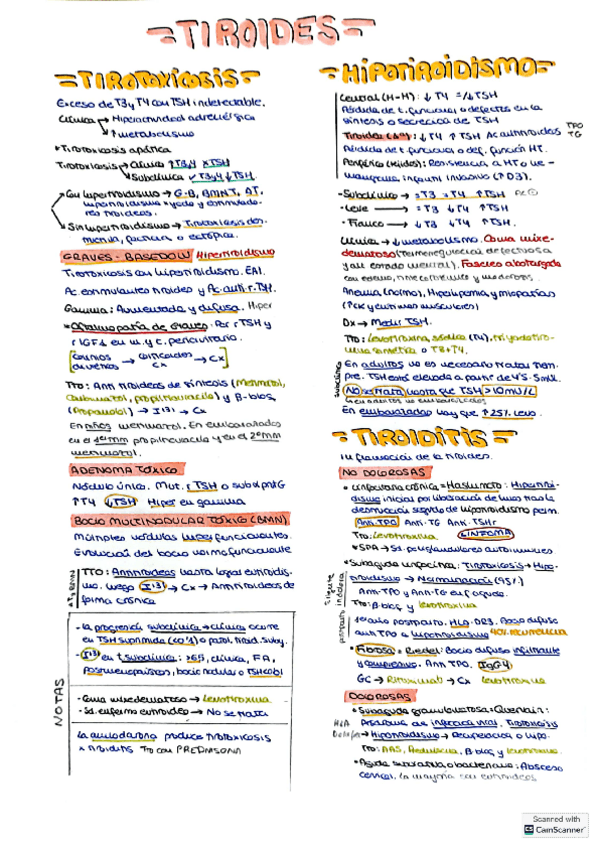 =TIROIDES=
=TIROTOXICOSIS=
Exceso de T3 y T4 con TSH indetectable.
Clínica → Hiperactividad adrenérgica
↑ metabolismo
• Tirotoxicosis apática
Tirotoxicosis → Clínica ↑T3y4 ↓TSH
Subclínica ✓T3y4 ↓TSH.
• Con hipertiroidismo → G-B, BMNT, AT,
Sin hipertiroidismo → Tirotoxicosis
facticia o ectópica.
GRAVES-BASEDOW Hipertiroidismo
Tirotoxicosis con hipertiroidismo. EAI.
Ac. circulantes tiroides y Ac. anti r.TSH.
Gamma: Aumentada y difusa. Hiper
• Oftalmopatía de Graves. Por rTSH y
r IGF1 en m. y c. periorbitario.
→ Cx
Tto: Antitiroideos de síntesis (Metimazol,
Carbimazol, propiltiouracilo) y B-bloq
(Propanolol) → I131 → Cx
En niños metimazol. En embarazadas
en el 1er trim propiltiouracilo y en el 2º trim
metimazol.
ADENOMA TÓXICO
Nódulo único. Mut. rTSH o subα protG
↑T4 ↓TSH Hiper en gamma
BOCIO MULTINODULAR TÓXICO (BMN)
Múltiples nódulos hiperfuncionantes.
Evolución del bocio normofuncionante
TTO: Antitiroideos hasta lograr eutiroidis-
mo. Luego I131 → Cx → Antitiroideos de
forma crónica
NOTAS
- La progresión subclínica → clínica ocurre
en TSH suprimida (<0'1) o patol. tiroid. suby.
- I131 en t. subclínica: >65, clínica, FA,
Postmenopáusicas, bocio nodular o TSH<0'1
- Coma mixedematoso → Levotiroxina
- Sd. enfermo eutiroideo → No se trata
La amiodarona produce tirotoxicosis
x tiroiditis Tto con PREDNISONA
=HIPOTIROIDISMO=
Central (H-H): ↓T4 =/↓TSH
Pérdida de t. funcional o defectos en la
síntesis o secreción de TSH
Tiroideo (1º): ↓T4 ↑TSH Ac antitiroideos TPO TG
Pérdida de t. funcional o def. función HT.
Periférico (tejidos): Resistencia a HT o he-
mangioma infantil invasivo (↑D3).
-Subclínico → =T3 =T4 ↑TSH
-Leve → =T3 ↓T4 ↑TSH
-Franco → ↓T3 ↓T4 ↑TSH.
Clínica → ↓metabolismo. Coma mixe-
dematoso (Termorregulación defectuosa
y alt estado mental). Fascies abotargada
Anemia (normo), Hiperlipemia y miopatías
(↑CK y enzimas musculares)
Dx → Medir TSH.
Tto: Levotiroxina sódica (T4), triyodotiro-
nina sintética o T3+T4.
Subclínico
En adultos no es necesario tratar siem-
pre. TSH está elevada a partir de 4'5-5mU/L
No se trata hasta que TSH >10mU/L
En embarazadas hay que ↑25% Levo.
=TIROIDITIS=
Inflamación de la tiroides.
NO DOLOROSAS
• Linfocitaria crónica = Hashimoto: Hipertiroi-
dismo inicial por liberación de horm. tras la
destrucción seguido de hipotiroidismo perm.
Anti TPO Anti TG Anti TSHr
Tto: Levotiroxina LINFOMA
• SPA → Sd. poliglandulares autoinmunes
• Subaguda linfocítica: Tirotoxicosis → Hipo-
tiroidismo → Normalización (95%)
Anti-TPO y Anti-TG
Tto: B-bloq y levotiroxina
1er año postparto. HLA-DR5. Bocio difuso
anti TPO ± hipotiroidismo
• Fibrosa = Riedel: Bocio difuso infiltrante
y compresivo. Anti TPO. IgG4
GC → Rituximab → Cx Levotiroxina
DOLOROSAS
• Subaguda granulomatosa = Quervain:
Antecedente de infección viral. Tirotoxicosis
→ Hipotiroidismo → Recuperación o hipo.
Tto: AAS, Prednisona, B-bloq y levotiroxina
• Aguda supurativa o bacteriana: Absceso
cervical, la mayoría son eutiroideos
Scanned with
CamScanner